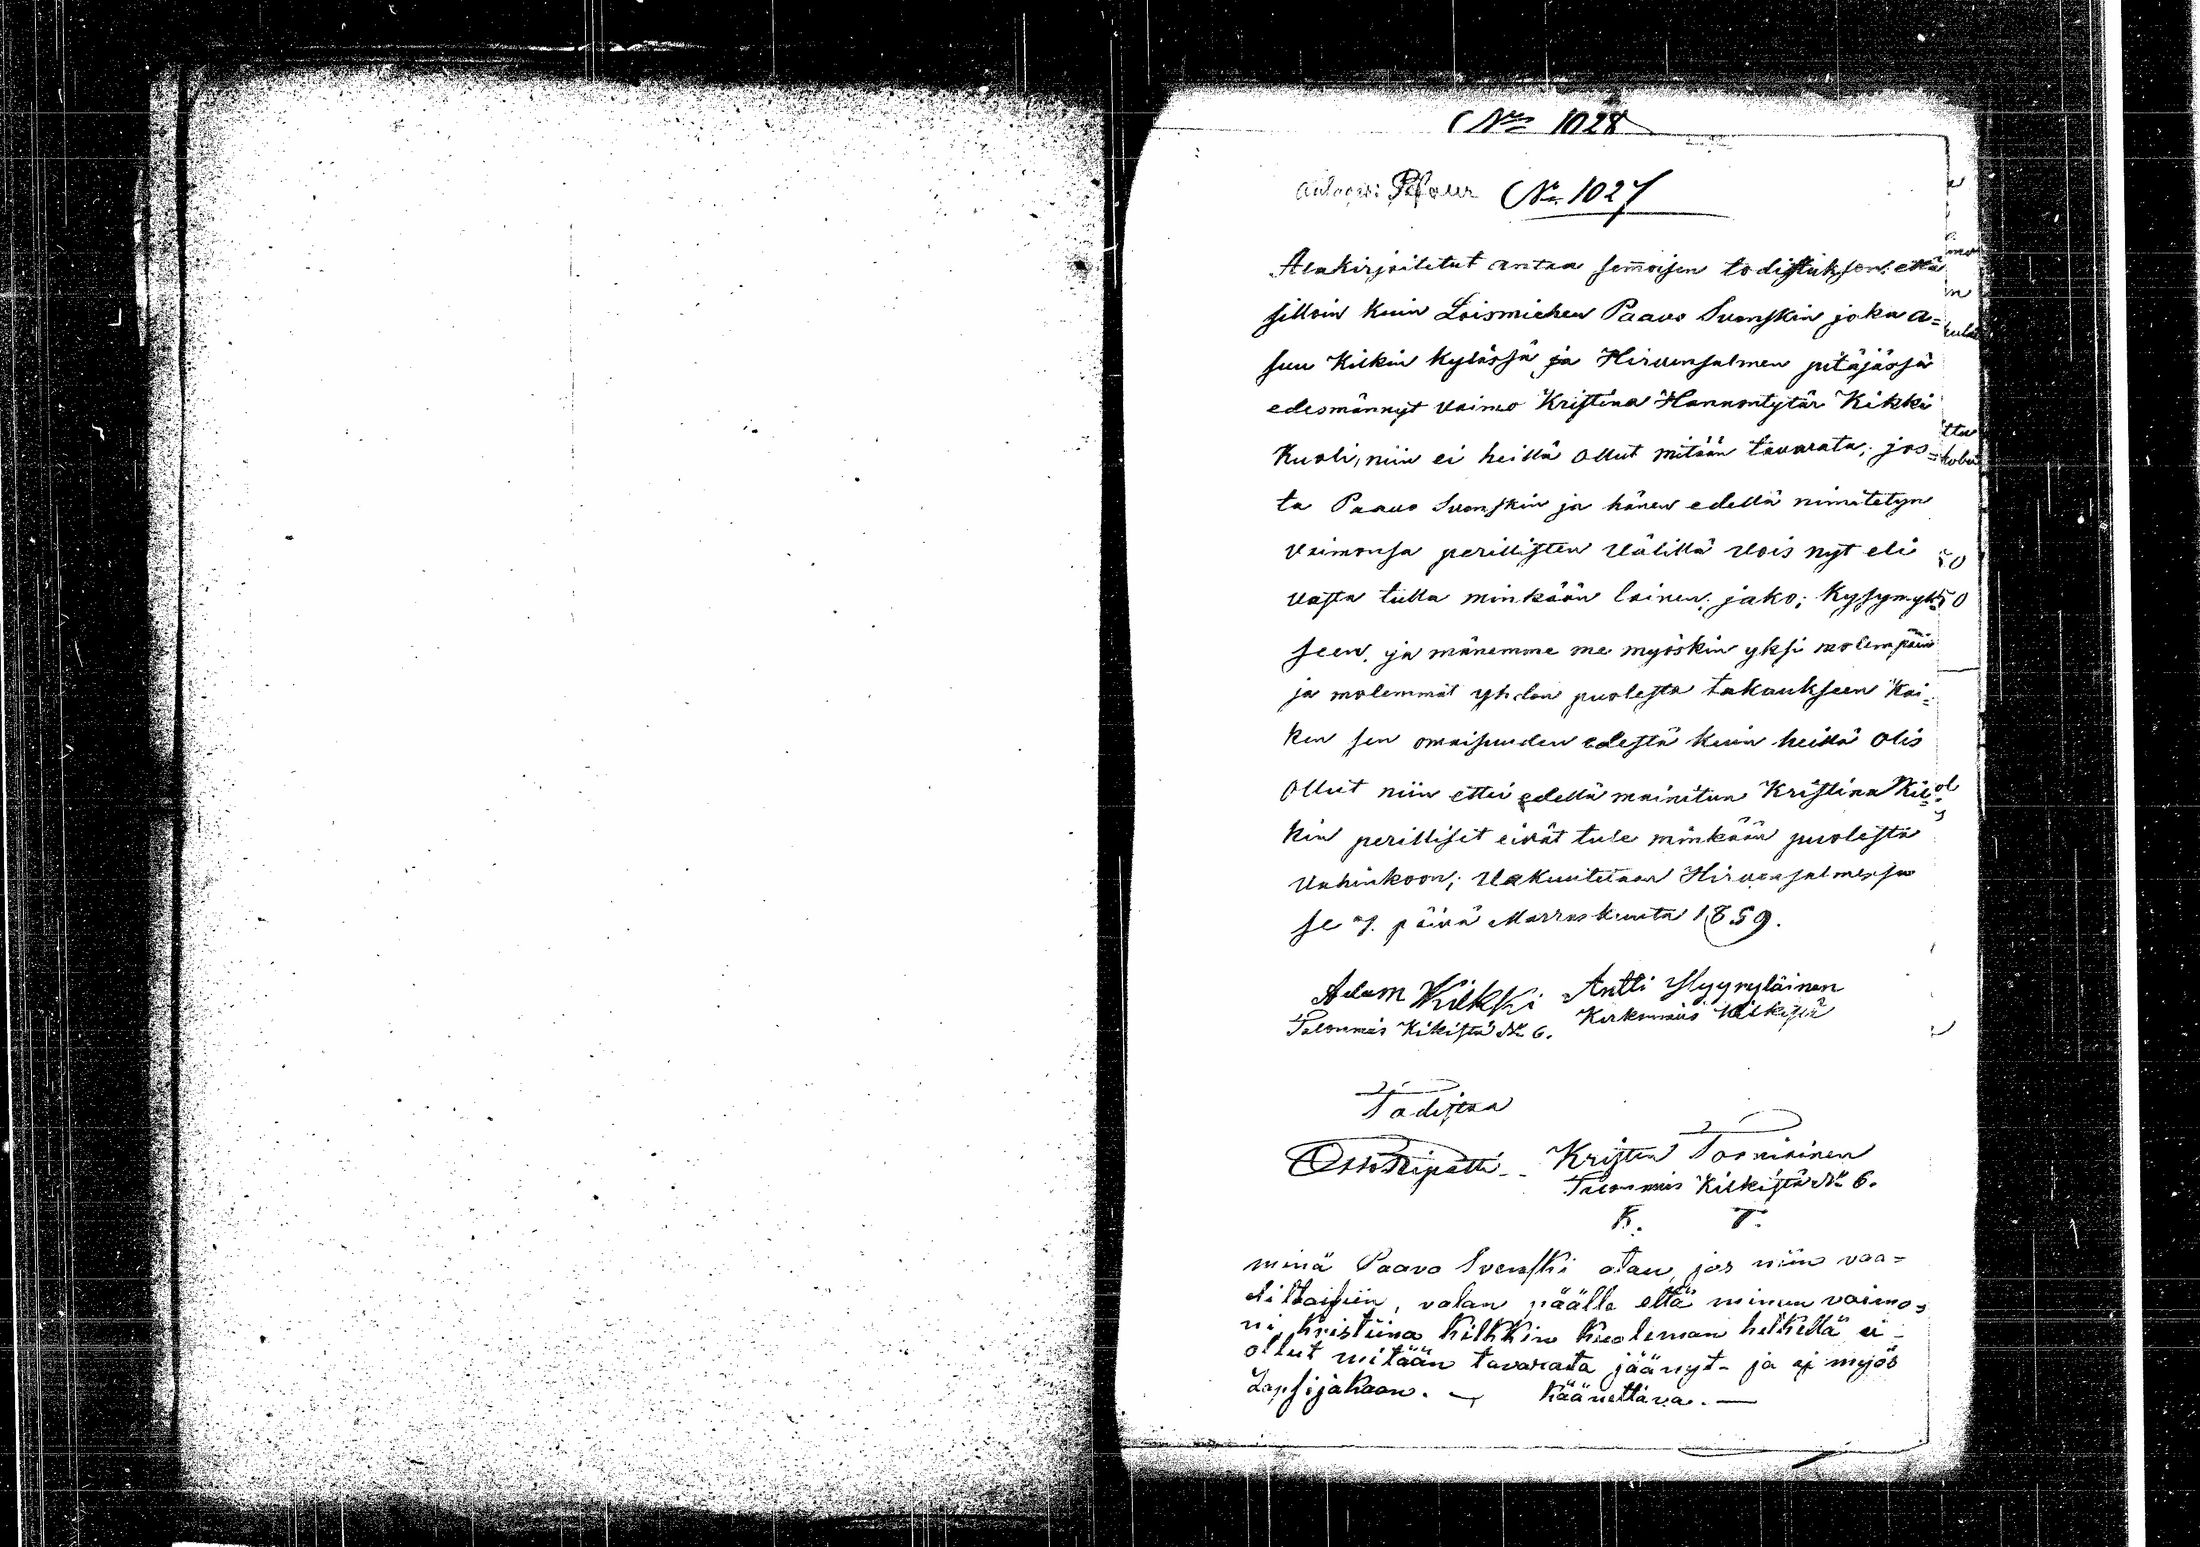 No 1028
No 1027
Alakirjoitetut antaa semoisen todistuksen: että
silloin kuin Loismiehen Paavo Svenskin joka a=
suu Kilkin kylässä ja Hirvensalmen pitäjässä
edesmännyt vaimo Kristina Hannontytär Kikki
Kuoli, niin ei heillä ollut mitään tavarata; jos=
ta Paavo Svenskin ja hänen edellä nimitetyn
vaimonsa perillisten välillä vois nyt eli
vasta tulla minkään lainen; jako; kysymyk=
seen, ja mänemme me myöskin yksi molempäin
ja molemmat yhden puolesta takaukseen kai=
ken sen omaisuuden edestä kuin heillä olis
ollut niin ettei edellä mainitun Kristina Kil=
kin perilliset eivät tule minkään puolesta
vahinkoon; vakuutetaan Hirvensalmessa
se 7. päivä Marraskuuta 1859.
Adam Kilkki Antti Hyyryläinen
Talonmies Kilkistä No 6. Kirkonmies Kilkistä
Todistaa
Otto Ripatti Kristen Tarnninen
Talonmies Kilkistä No 6.
K. T.
minä Paavo Svenski otan, jos niin vaa=
dittaisiin, valan päälle että minun vaimo=
ni Kristiina Kilkkin kuoleman hetkellä ei
ollut mitään tavarata jäänyt - ja ej myös
Lapsijakaan. — Käänettävä. —